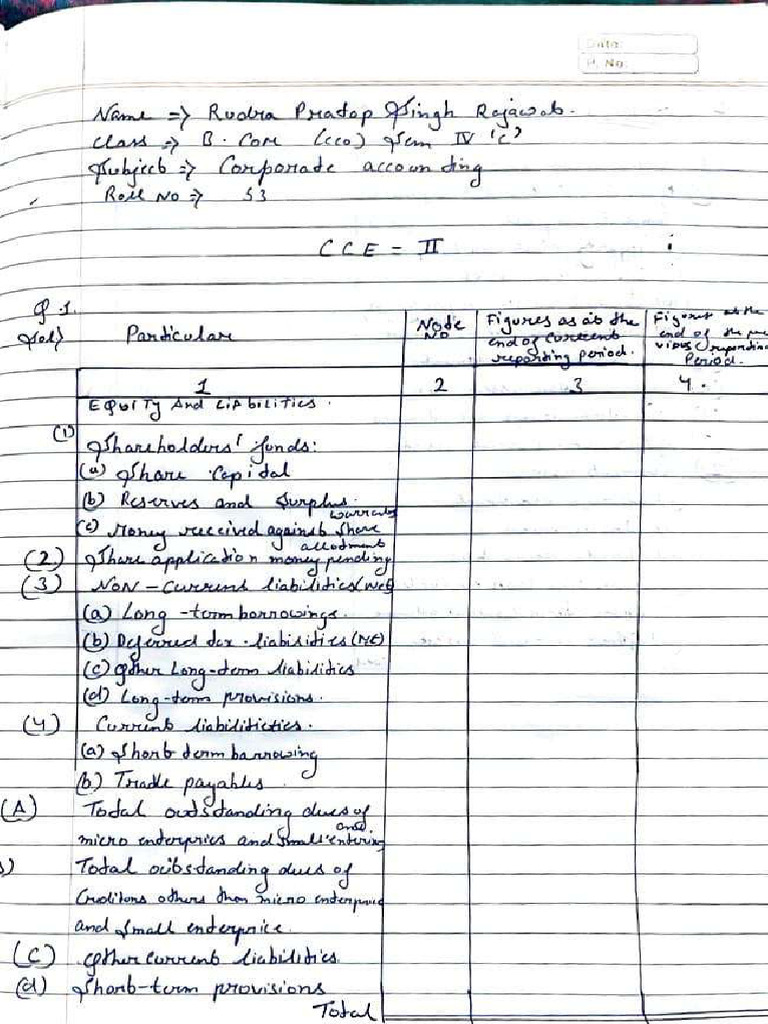 Date:
P. No:
Name => Rudra Pratap Singh Rajawat.
Class => B. Com (CCO) Sem IV 'C'
Subject => Corporate accounting
Roll No => 53
CCE = II
Q.1.
Sol) Particular Note No Figures as at the end of current reporting period. Figures at the end of the previous reporting Period.
1 2 3 4.
EQUITY And LIABILITIES.
(1) Shareholders' funds:
(a) Share Capital
(b) Reserves and Surplus.
(c) Money received against Share warrants
(2) Share application money pending allotment
(3) NON-Current liabilities
(a) Long-term borrowings.
(b) Deferred tax-liabilities
(c) Other Long-term liabilities
(d) Long-term provisions.
(4) Current liabiliticties.
(a) Short term borrowing
(b) Trade payables.
(A) Total outstanding dues of
micro enterprices and small
Total outstanding dues of
Creditors others than micro enterprice
and small enterprice.
(C) Other current liabilities.
(d) Short-term provisions
Total